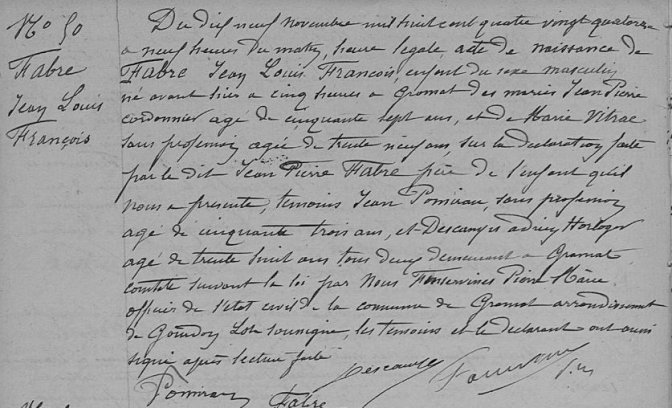 No 50
Fabre
Jean Louis
François
Du dix neuf Novembre mil huit cent quatre vingt quatorze
a neuf heures du matin, heure legale acte de naissance de
Fabre Jean Louis François, enfant du sexe masculin
né avant hier a cinq heures a Gramat des mariés Jean Pierre
cordonnier age de cinquante sept ans, et de Marie Vitrac
sans profession agée de trente neuf ans sur la declaration faite
par le dit Jean Pierre Fabre père de l'enfant qu'il
nous a presenté, temoins Jean Pomirau, sans profession
agé de cinquante trois ans, et Descamps horloger
agé de trente huit ans tous deux demeurant a Gramat
constaté suivant la loi par Nous Pierre Maire
officier de l'etat civil de la commune de Gramat arrondissement
de Gourdon Lot soussigné, les temoins et le declarant ont aussi
signé après lecture faite
Descamps
Pomirau Fabre